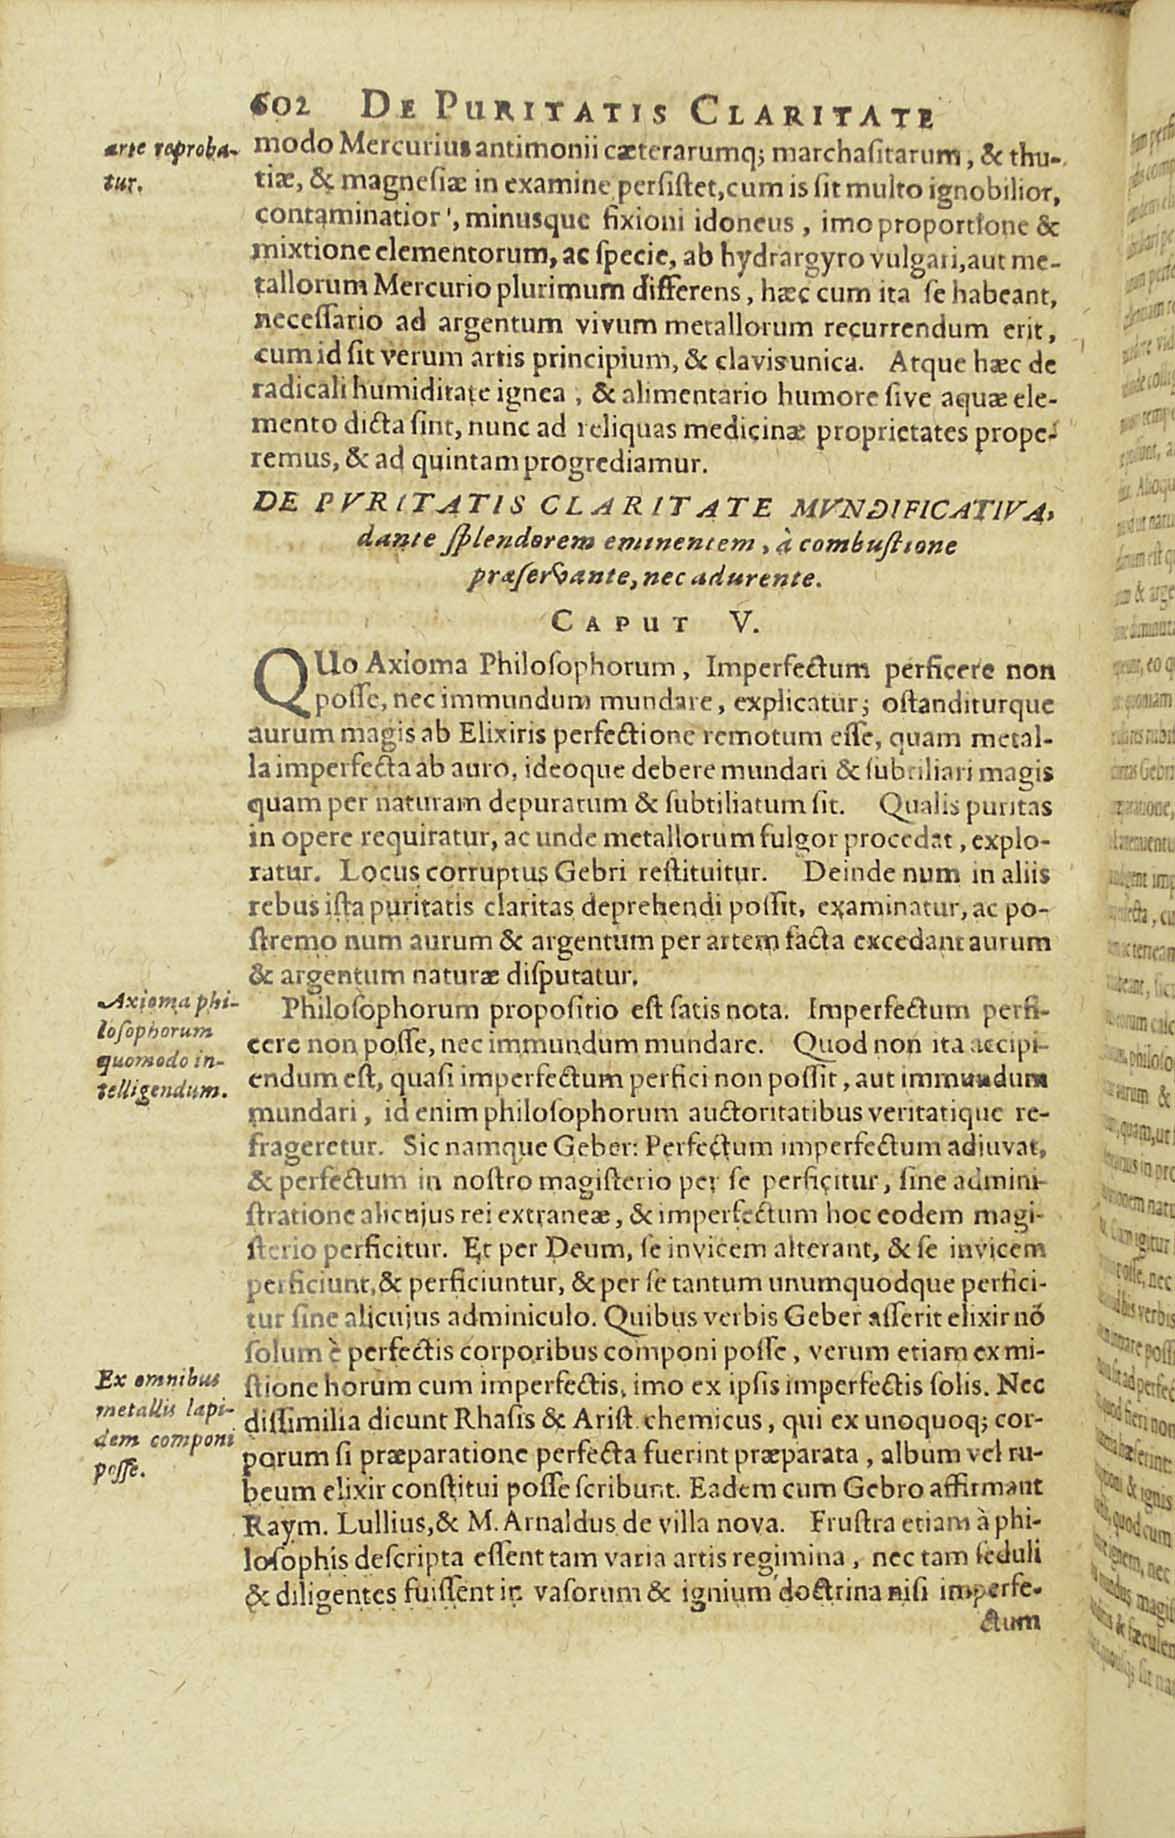 602 DE PURITATIS CLARITATE
arte reproba-
tur.
modo Mercurius antimonii cæterarumq; marchasitarum, & thu-
tiæ, & magnesiæ in examine persistet, cum is sit multo ignobilior,
contaminatior, minusque fixioni idoneus, imo proportione &
mixtione elementorum, ac specie, ab hydrargyro vulgari, aut me-
tallorum Mercurio plurimum differens, hæc cum ita se habeant,
necessario ad argentum vivum metallorum recurrendum erit,
cum id sit verum artis principium, & clavis unica. Atque hæc de
radicali humiditate ignea, & alimentario humore sive aquæ ele-
mento dicta sint, nunc ad reliquas medicinæ proprietates prope-
remus, & ad quintam progrediamur.
DE PVRITATIS CLARITATE MVNDIFICATIVA,
dante splendorem eminentem, à combustione
præservante, nec adurente.
CAPUT V.
QUo Axioma Philosophorum, Imperfectum perficere non
posse, nec immundum mundare, explicatur; ostanditurque
aurum magis ab Elixiris perfectione remotum esse, quam metal-
la imperfecta ab auro, ideoque debere mundari & subtiliari magis
quam per naturam depuratum & subtiliatum sit. Qualis puritas
in opere requiratur, ac unde metallorum fulgor procedat, explo-
ratur. Locus corruptus Gebri restituitur. Deinde num in aliis
rebus ista puritatis claritas deprehendi possit, examinatur, ac po-
stremo num aurum & argentum per artem facta excedant aurum
& argentum naturæ disputatur.
Axioma phi-
losophorum
quomodo in-
telligendum.
Philosophorum propositio est satis nota. Imperfectum perfi-
cere non posse, nec immundum mundare. Quod non ita accipi-
endum est, quasi imperfectum perfici non possit, aut immundum
mundari, id enim philosophorum auctoritatibus veritatique re-
frageretur. Sic namque Geber: Perfectum imperfectum adiuvat,
& perfectum in nostro magisterio per se perficitur, sine admini-
stratione alicujus rei extraneæ, & imperfectum hoc eodem magi-
sterio perficitur. Et per Deum, se invicem alterant, & se invicem
perficiunt, & perficiuntur, & per se tantum unumquodque perfici-
tur sine alicujus adminiculo. Quibus verbis Geber asserit elixir nõ
solum è perfectis corporibus componi posse, verum etiam ex mi-
stione horum cum imperfectis, imo ex ipsis imperfectis solis. Nec
Ex omnibus
metallis lapi-
dem componi
posse.
dissimilia dicunt Rhasis & Arist. chemicus, qui ex unoquoq; cor-
porum si præparatione perfecta fuerint præparata, album vel ru-
beum elixir constitui posse scribunt. Eadem cum Gebro affirmant
Raym. Lullius, & M. Arnaldus de villa nova. Frustra etiam à phi-
losophis descripta essent tam varia artis regimina, nec tam seduli
& diligentes fuissent in vasorum & ignium doctrina nisi imperfe-
ctum